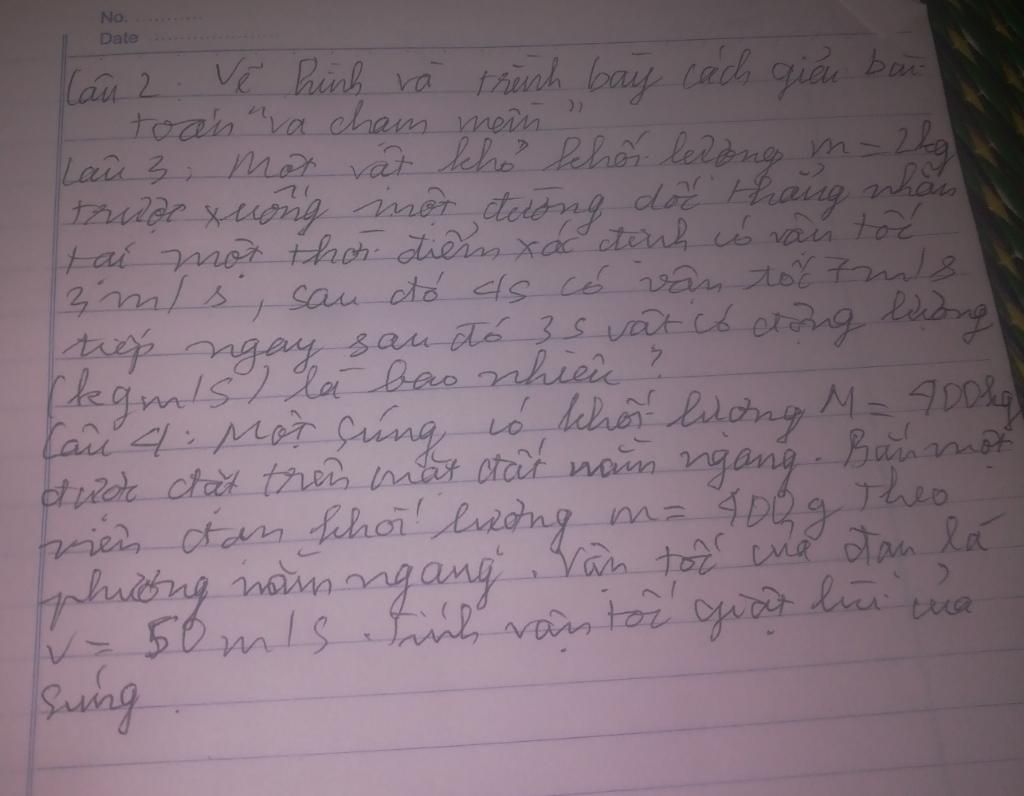 No. ............
Date ......................
Câu 2. Vẽ hình và trình bày cách giải bài
toán "va chạm mềm"
Câu 3: Một vật khổ khối lượng m = 2kg
trượt xuống một đường dốc thẳng nhẵn
tại một thời điểm xác định có vận tốc
3 m/s, sau đó 4s có vận tốc 7m/s
tiếp ngay sau đó 3s vật có động lượng
(kgm/s) là bao nhiêu?
Câu 4: Một súng có khối lượng M = 400kg
được đặt trên mặt đất nằm ngang. Bắn một
viên đạn khối lượng m = 400g theo
phương nằm ngang. Vận tốc của đạn là
v = 50 m/s. Tính vận tốc giật lùi của
súng.